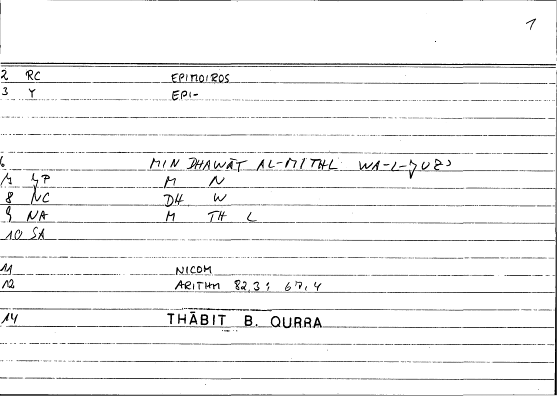 1
2 RC EPIMOIROS
3 Y EPI-
6 MIN DHAWĀT AL-MITHL WA-L-JUZ'
7 JP M N
8 NC DH W
9 NA M TH L
10 SA
11 NICOM
12 ARITHM 82,3; 67,4
14 THĀBIT B. QURRA